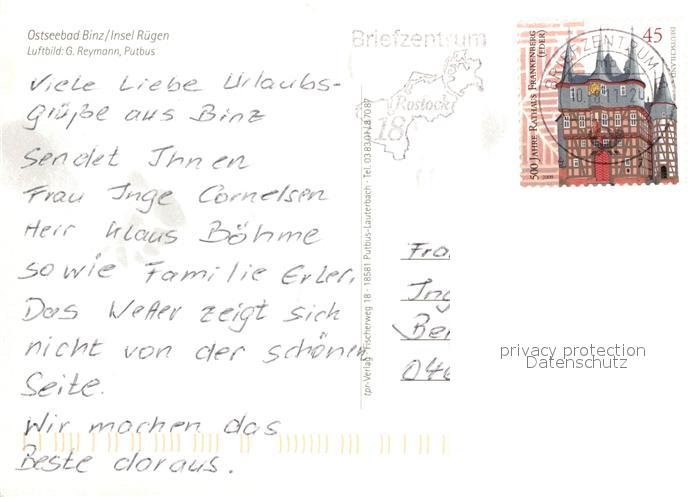 Ostseebad Binz/Insel Rügen
Luftbild: G. Reymann, Putbus
Viele Liebe Urlaubs-
grüße aus Binz
sendet Ihnen
Frau Inge Cornelsen
Herr Klaus Böhme
sowie Familie Erler.
Das Wetter zeigt sich
nicht von der schönen
Seite.
Wir machen das
Beste daraus.
tpr-Verlag · Fischerweg 18 · 18581 Putbus-Lauterbach · Tel.
Briefzentrum
Rostock
18
BRIEFZENTRUM
500 JAHRE RATHAUS FRANKENBERG
(EDER)
45
DEUTSCHLAND
2009
Fra
Ing
Ber
privacy protection
Datenschutz